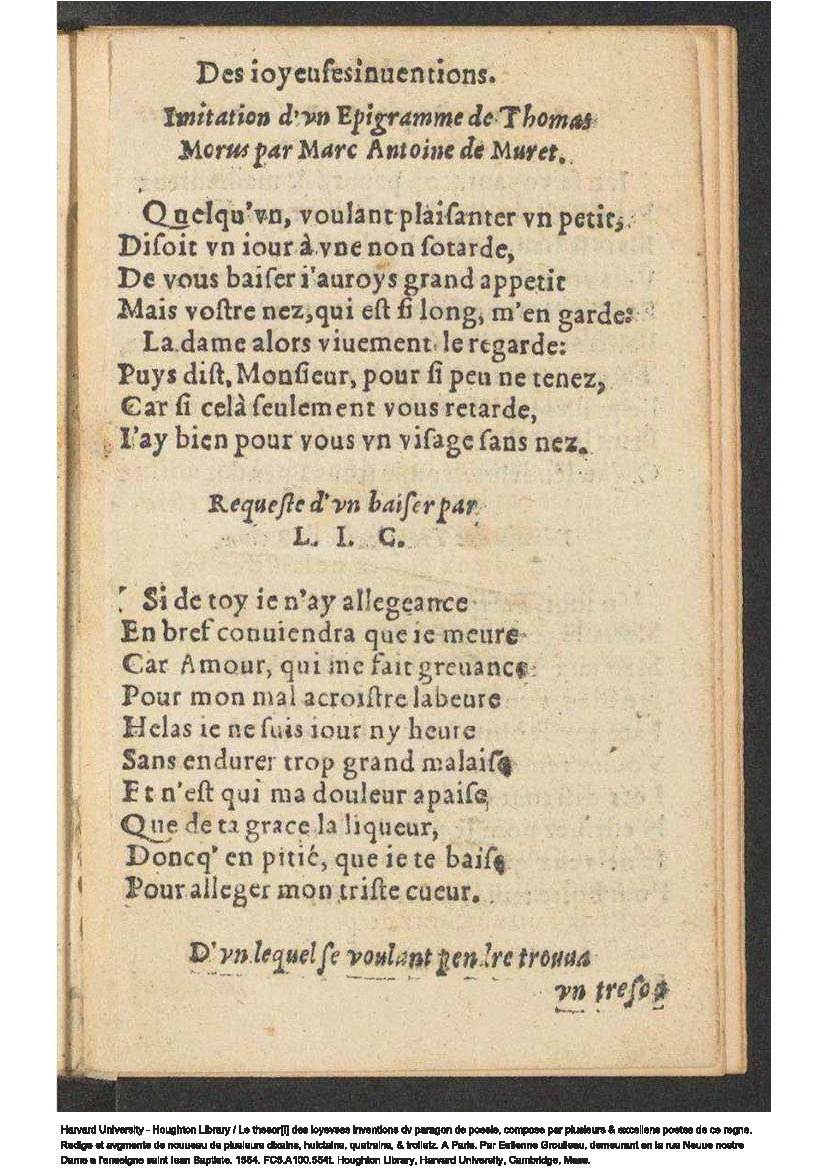 Des ioyeusesinuentions.
Imitation d'vn Epigramme de Thomas
Morus par Marc Antoine de Muret.
Quelqu'vn, voulant plaisanter vn petit,
Disoit vn iour à vne non sotarde,
De vous baiser i'auroys grand appetit
Mais vostre nez, qui est si long, m'en garde:
La dame alors viuement le regarde:
Puys dist, Monsieur, pour si peu ne tenez,
Car si celà seulement vous retarde,
I'ay bien pour vous vn visage sans nez.
Requeste d'vn baiser par
L. I. C.
Si de toy ie n'ay allegeance
En bref conuiendra que ie meure
Car Amour, qui me fait greuance
Pour mon mal acroistre labeure
Helas ie ne suis iour ny heure
Sans endurer trop grand malaise
Et n'est qui ma douleur apaise
Que de ta grace la liqueur,
Doncq' en pitié, que ie te baise
Pour alleger mon triste cueur.
D'vn lequel se voulant pendre trouua
vn tresor
Harvard University - Houghton Library / Le thesor[i] des ioyevses inventions dv paragon de poesie, compose par plusieurs & excellens poetes de ce regne.
Redige et avgmente de nouueau de plusieurs dixains, huictains, quatrains, & trolietz. A Paris. Par Estienne Groulleau, demeurant en la rue Neuue nostre
Dame a l'enseigne saint Iean Baptiste. 1554. FC5.A100.554t. Houghton Library, Harvard University, Cambridge, Mass.